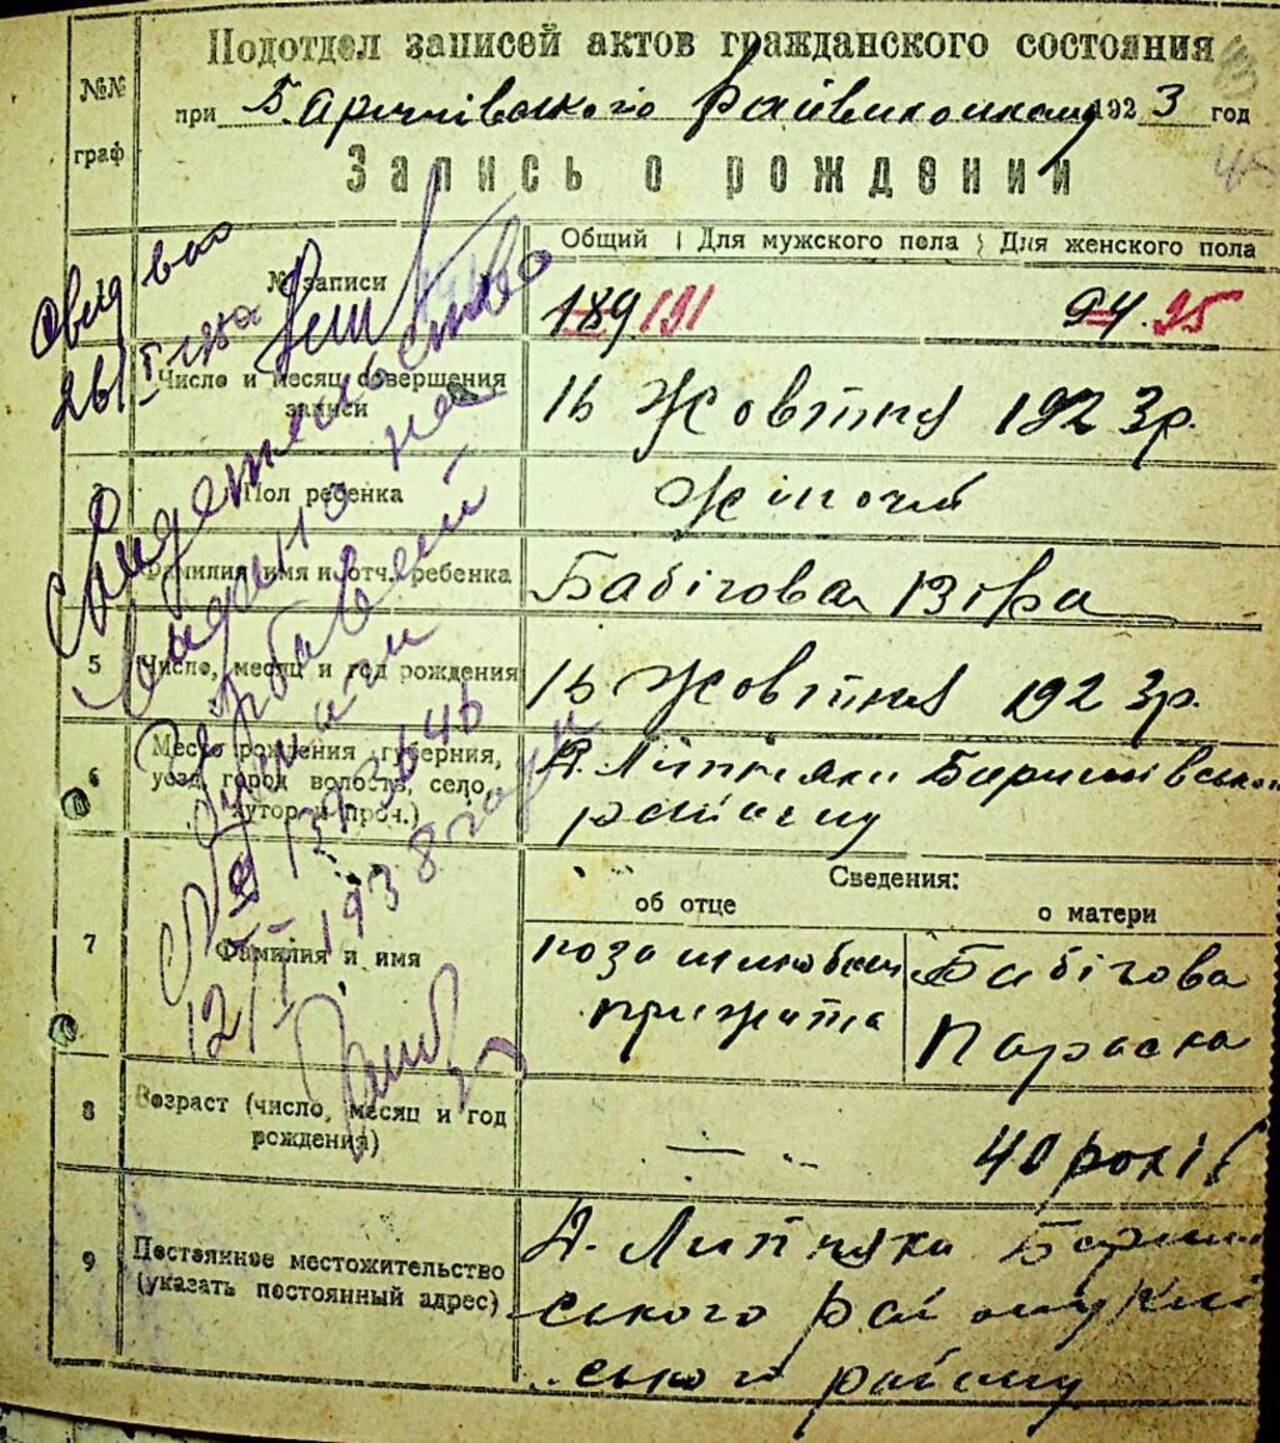 Подотдел записей актов гражданского состояния
№№ граф
при Баришівського Райвиконкому 1923 год
Запись о рождении
45
Общий Для мужского пола Для женского пола
№ записи
189 191 94. 95
Число и месяц совершения записи
16 Жовтня 1923р.
Пол ребенка
Жіночій
Фамилия, имя и отч. ребенка
Бабігова Віра
5 Число, месяц и год рождения
16 Жовтня 1923р.
6 Место рождения (губерния,
уезд, город волость, село,
хутор и проч.)
Д. Липняки Баришівського
району
Сведения:
об отце о матери
7 Фамилия и имя
поза шлюбом
прижита
Бабігова
Параска
8 Возраст (число, месяц и год
рождения)
— 40 років
9 Постоянное местожительство
(указать постоянный адрес)
Д. Липняки
ського
ського району
Свидетельство
выдано на
гербовой
бумаги
12/I 1938 года